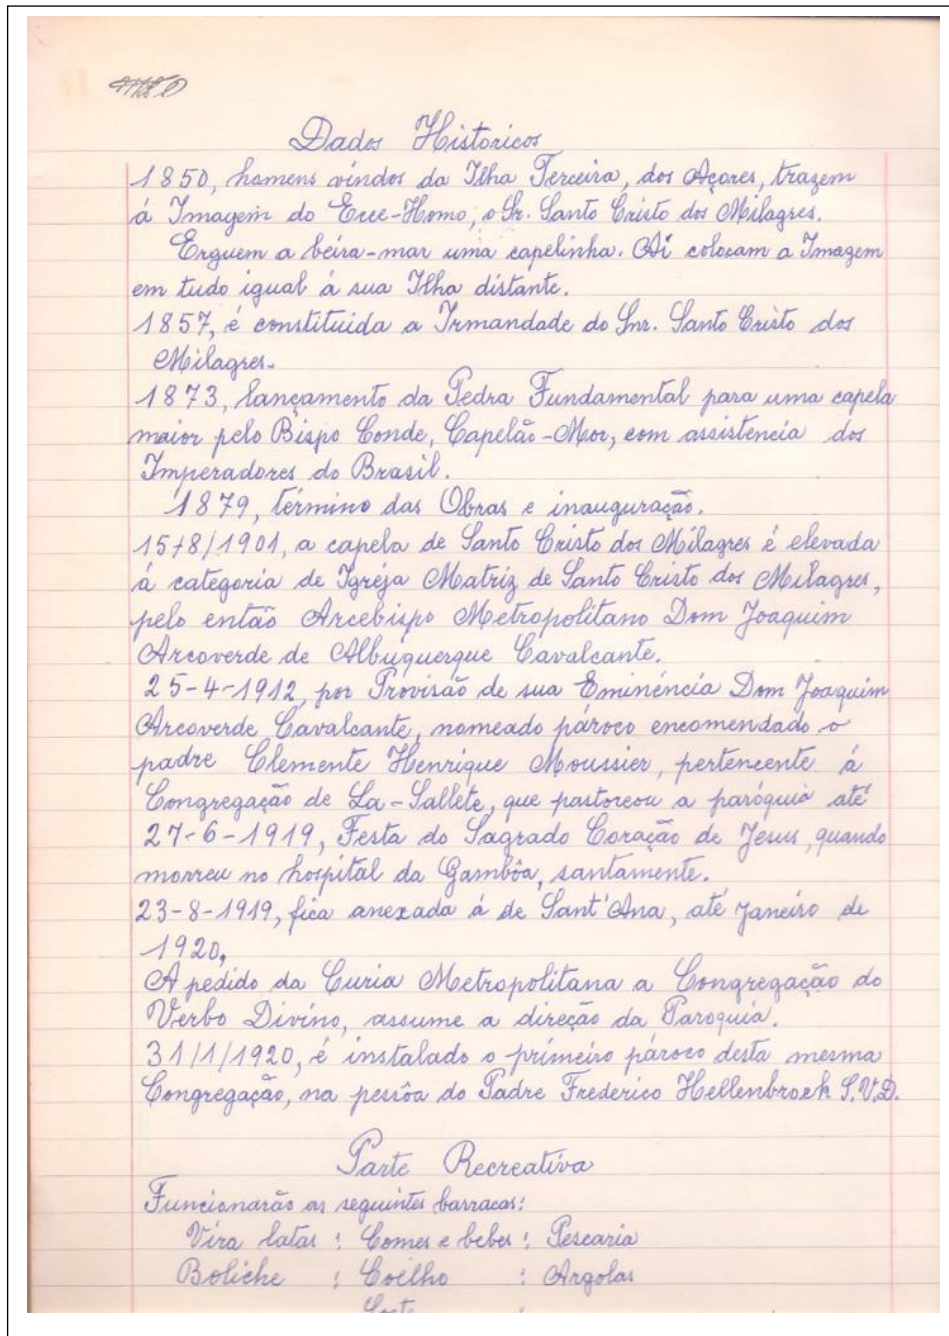 Dados Históricos
1850, homens vindos da Ilha Terceira, dos Açores, trazem
á Imagem do Ecce-Homo, o Sr. Santo Cristo dos Milagres.
Erguem a beira-mar uma capelinha. Aí colocam a Imagem
em tudo igual á sua Ilha distante.
1857, é constituida a Irmandade do Snr. Santo Cristo dos
Milagres.
1873, lançamento da Pedra Fundamental para uma capela
maior pelo Bispo Conde, Capelão-Mor, com assistencia dos
Imperadores do Brasil.
1879, término das Obras e inauguração.
15/8/1901, a capela de Santo Cristo dos Milagres é elevada
á categoria de Igreja Matriz de Santo Cristo dos Milagres,
pelo então Arcebispo Metropolitano Dom Joaquim
Arcoverde de Albuquerque Cavalcante.
25-4-1912, por Provisão de sua Eminência Dom Joaquim
Arcoverde Cavalcante, nomeado pároco encomendado o
padre Clemente Henrique Moussier, pertencente á
Congregação de La-Sallete, que pastoreou a paróquia até
27-6-1919, Festa do Sagrado Coração de Jesus, quando
morreu no hospital da Gambôa, santamente.
23-8-1919, fica anexada á de Sant'Ana, até janeiro de
1920.
A pedido da Curia Metropolitana a Congregação do
Verbo Divino, assume a direção da Paroquia.
31/1/1920, é instalado o primeiro pároco desta mesma
Congregação, na pessôa do Padre Frederico Hellenbroek S.V.D.
Parte Recreativa
Funcionarão as seguintes barracas:
Vira latas : Comes e bebes : Pescaria
Boliche : Coelho : Argolas